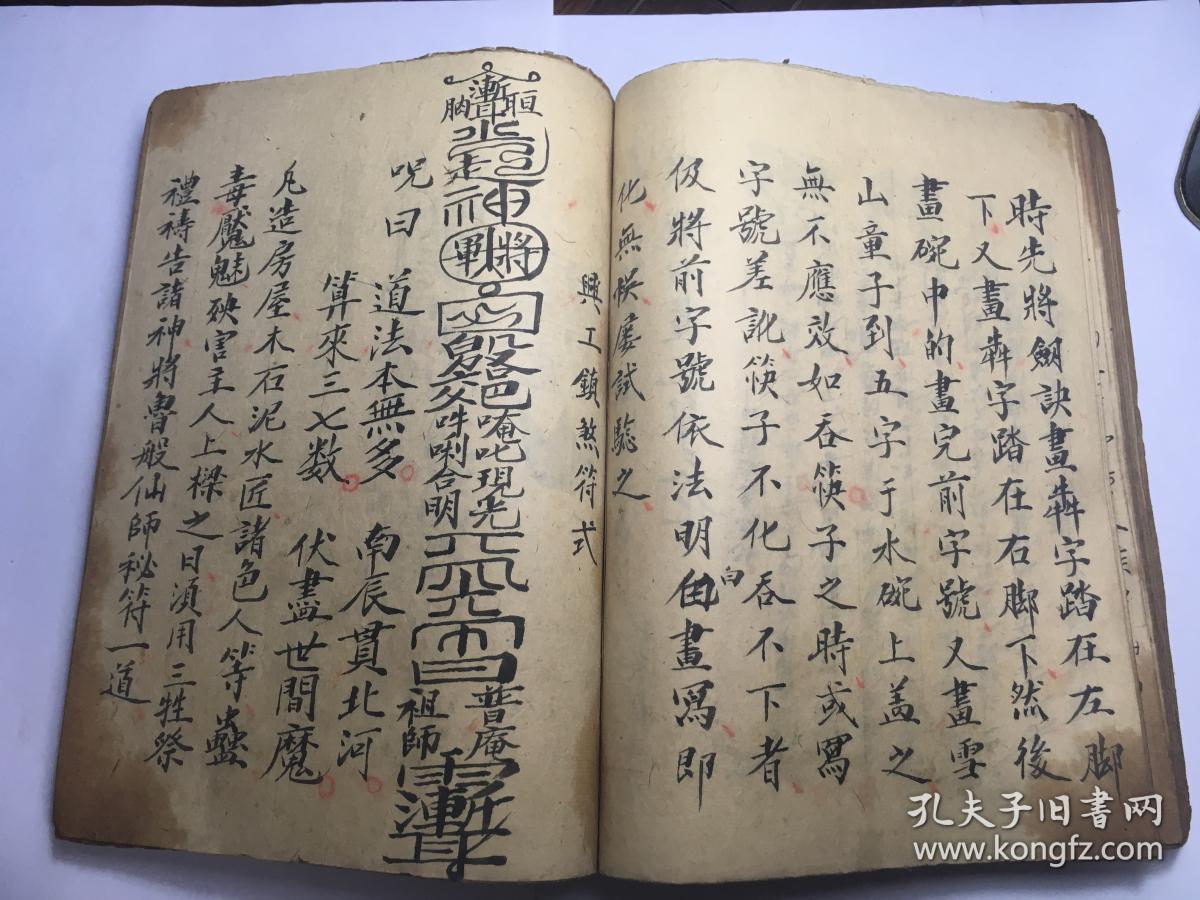 時先將劍訣畫犇字踏在左脚
下又畫犇字踏在右脚下然後
畫碗中的畫完前字號又畫雪
山童子到五字于水碗上盖之
無不應效如吞筷子之時或寫
字號差訛筷子不化吞不下者
伋將前字號依法明白畫寫即
化無候屢試驗之
興工鎮煞符式
神
將
唵吒現光
吽唎合明
普庵
祖師
咒曰
道法本無多 南辰貫北河
算來三七数 伏盡世間魔
凡造房屋木石泥水匠諸色人等蠱
毒魘魅殃害主人上樑之日須用三牲祭
禮禱告諸神將魯般仙師秘符一道
孔夫子旧书网
www.kongfz.com